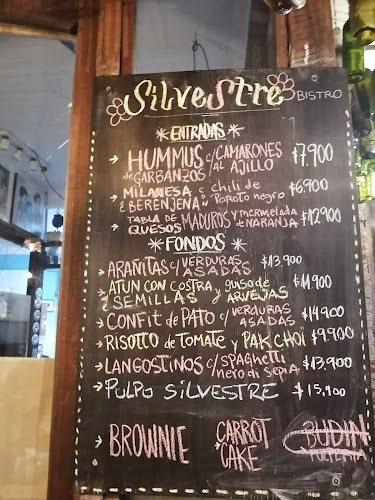 Silvestre
BISTRO
* ENTRADAS *
→ HUMMUS c/ CAMARONES $7.900
de GARBANZOS AL AJILLO
→ MILANESA c chili de $6.900
BERENJENA Poroto negro
TABLA DE MADUROS y mermelada $12.900
QUESOS de NARANJA
* FONDOS *
→ ARAÑITAS c/ VERDURAS $13.900
ASADAS
→ ATUN CON COSTRA y guiso de
SEMILLAS y ARVEJAS
→ CONFIT de PATO c/ VERDURAS $14.900
ASADAS
→ RISOTTO de TOMATE y PAK CHOI $9.900
→ LANGOSTINOS c/ SPAGHETTI $13.900
nero di sepia
→ PULPO SILVESTRE $15,900
→ BROWNIE → CARROT BUDIN
CAKE